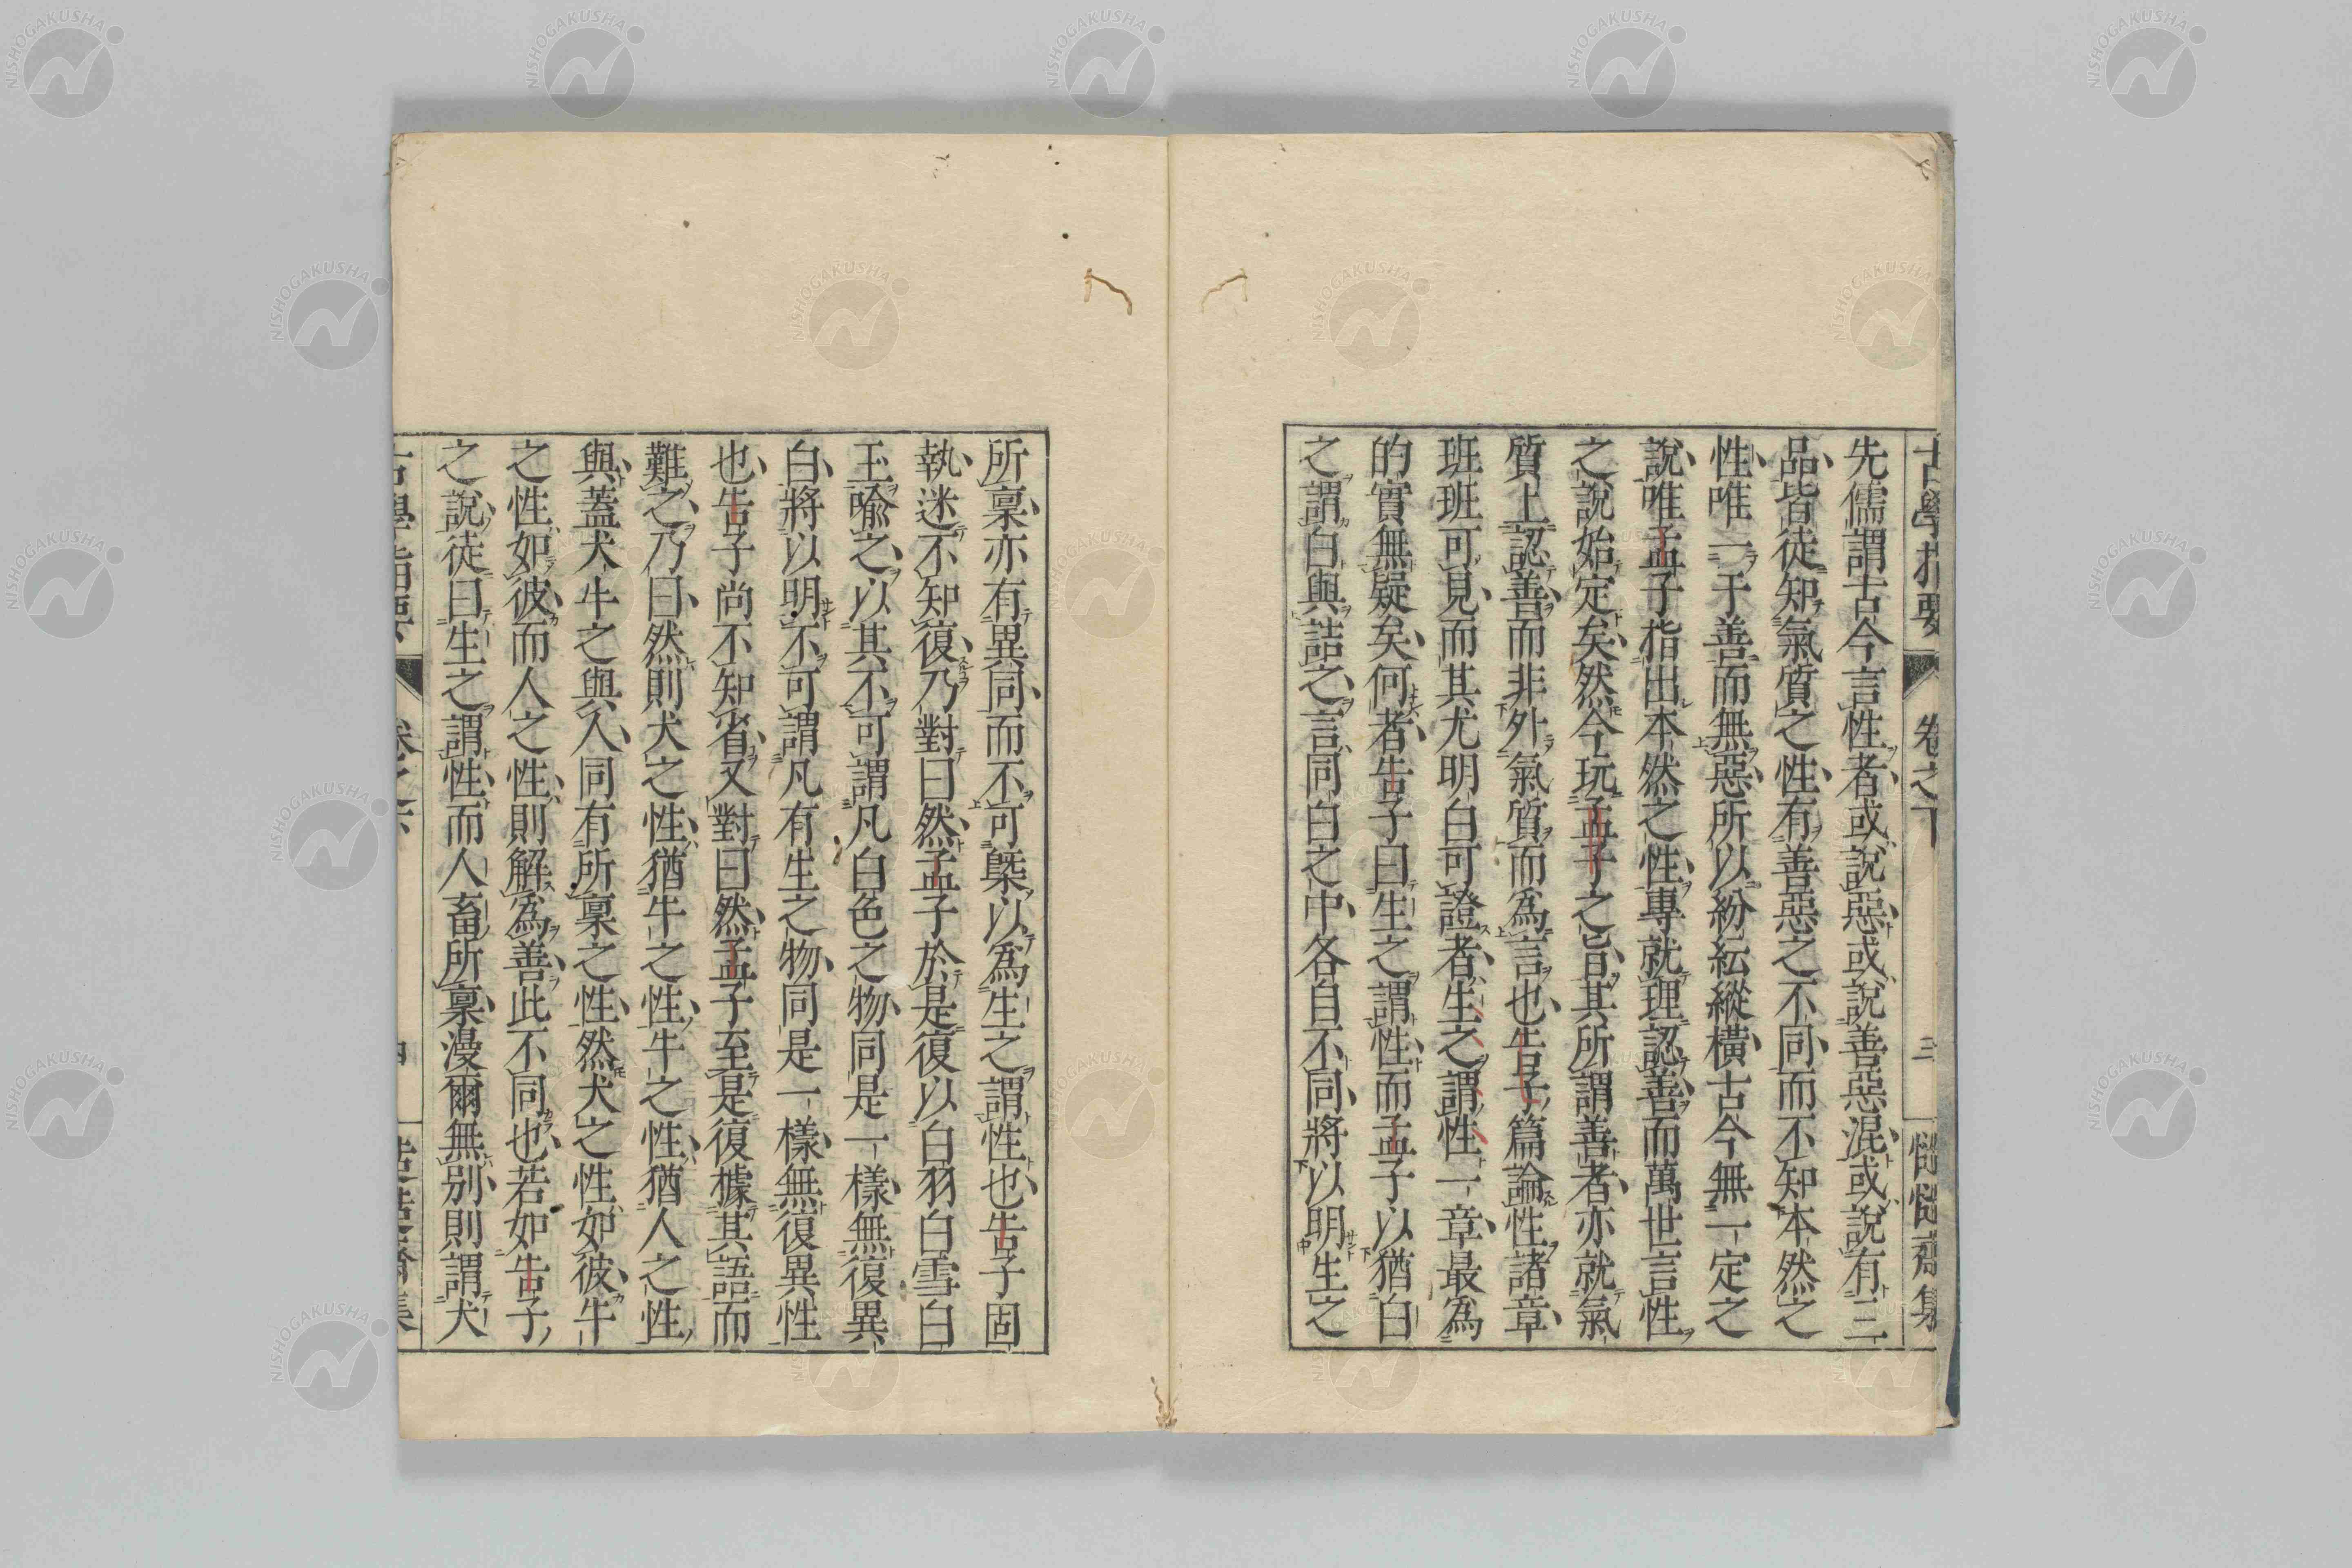 古學指要 卷之下 三 慥慥齋集
先儒謂古今言性者或說惡或說善惡混或說有三
品皆徒知氣質之性有善惡之不同而不知本然之
性唯一于善而無惡所以紛紜縱橫古今無一定之
說唯孟子指出本然之性專就理認善而萬世言性
之說始定矣然今玩孟子之旨其所謂善者亦就氣
質上認善而非外氣質而爲言也告子篇論性諸章
班班可見而其尤明白可證者生之謂性一章最爲
的實無疑矣何者告子曰生之謂性而孟子以猶白
之謂白與詰之言同白之中各自不同將以明生之
所稟亦有異同而不可槩以爲生之謂性也告子固
執迷不知復乃對曰然孟子於是復以白羽白雪白
玉喩之以其不可謂凡白色之物同是一樣無復異
白將以明不可謂凡有生之物同是一樣無復異性
也告子尚不知省又對曰然孟子至是復據其語而
難之乃曰然則犬之性猶牛之性牛之性猶人之性
與蓋犬牛之與人同有所稟之性然犬之性如彼牛
之性如彼而人之性則解爲善此不同也若如告子
之說徒曰生之謂性而人畜所稟漫爾無別則謂犬
古學指要 卷之下 四
NISHOGAKUSHA